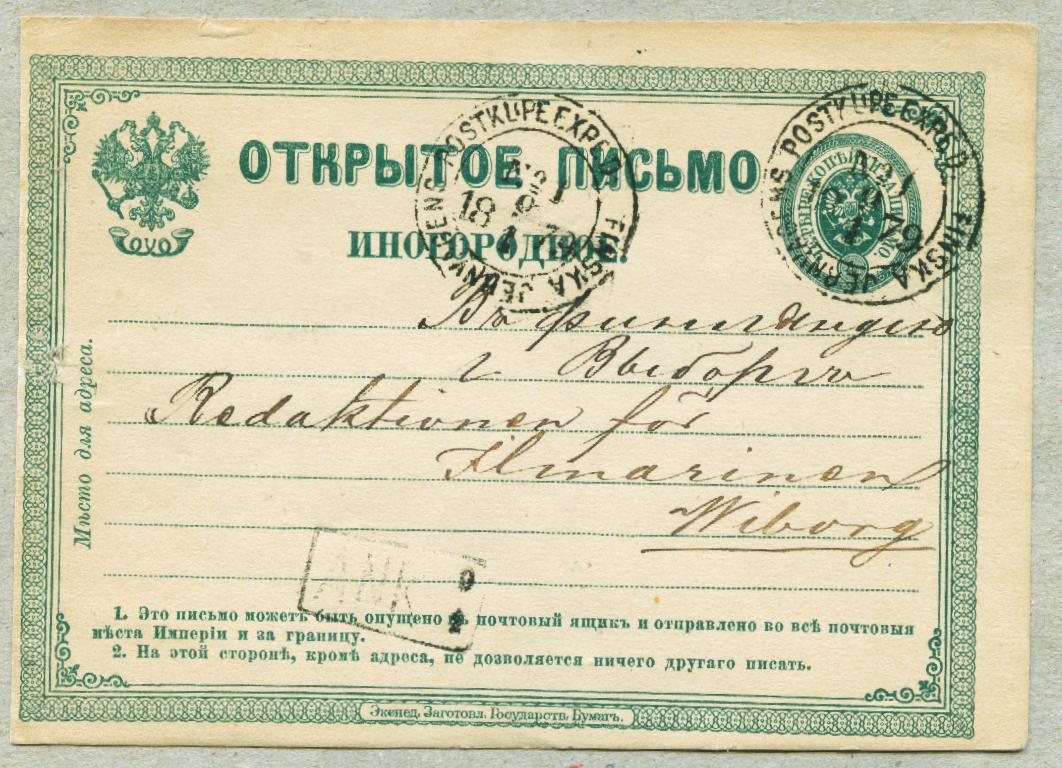 ОТКРЫТОЕ ПИСЬМО
ИНОГОРОДНОЕ.
POSTKUPEEXPED. FINSKA JERNVÄGENS
№ 1
9
18 79
1
POSTKUPEEXPED. FINSKA JERNVÄGENS
№ 1
18 9 79
1
Въ финляндію
г Выборгъ
Redaktionen för
Ilmarinen
Wiborg
Мѣсто для адреса.
ANK
9
1. Это письмо можетъ быть опущено въ почтовый ящикъ и отправлено во всѣ почтовыя
мѣста Имперіи и за границу.
2. На этой сторонѣ, кромѣ адреса, не дозволяется ничего другаго писать.
Экспед. Заготовл. Государств. Бумагъ.